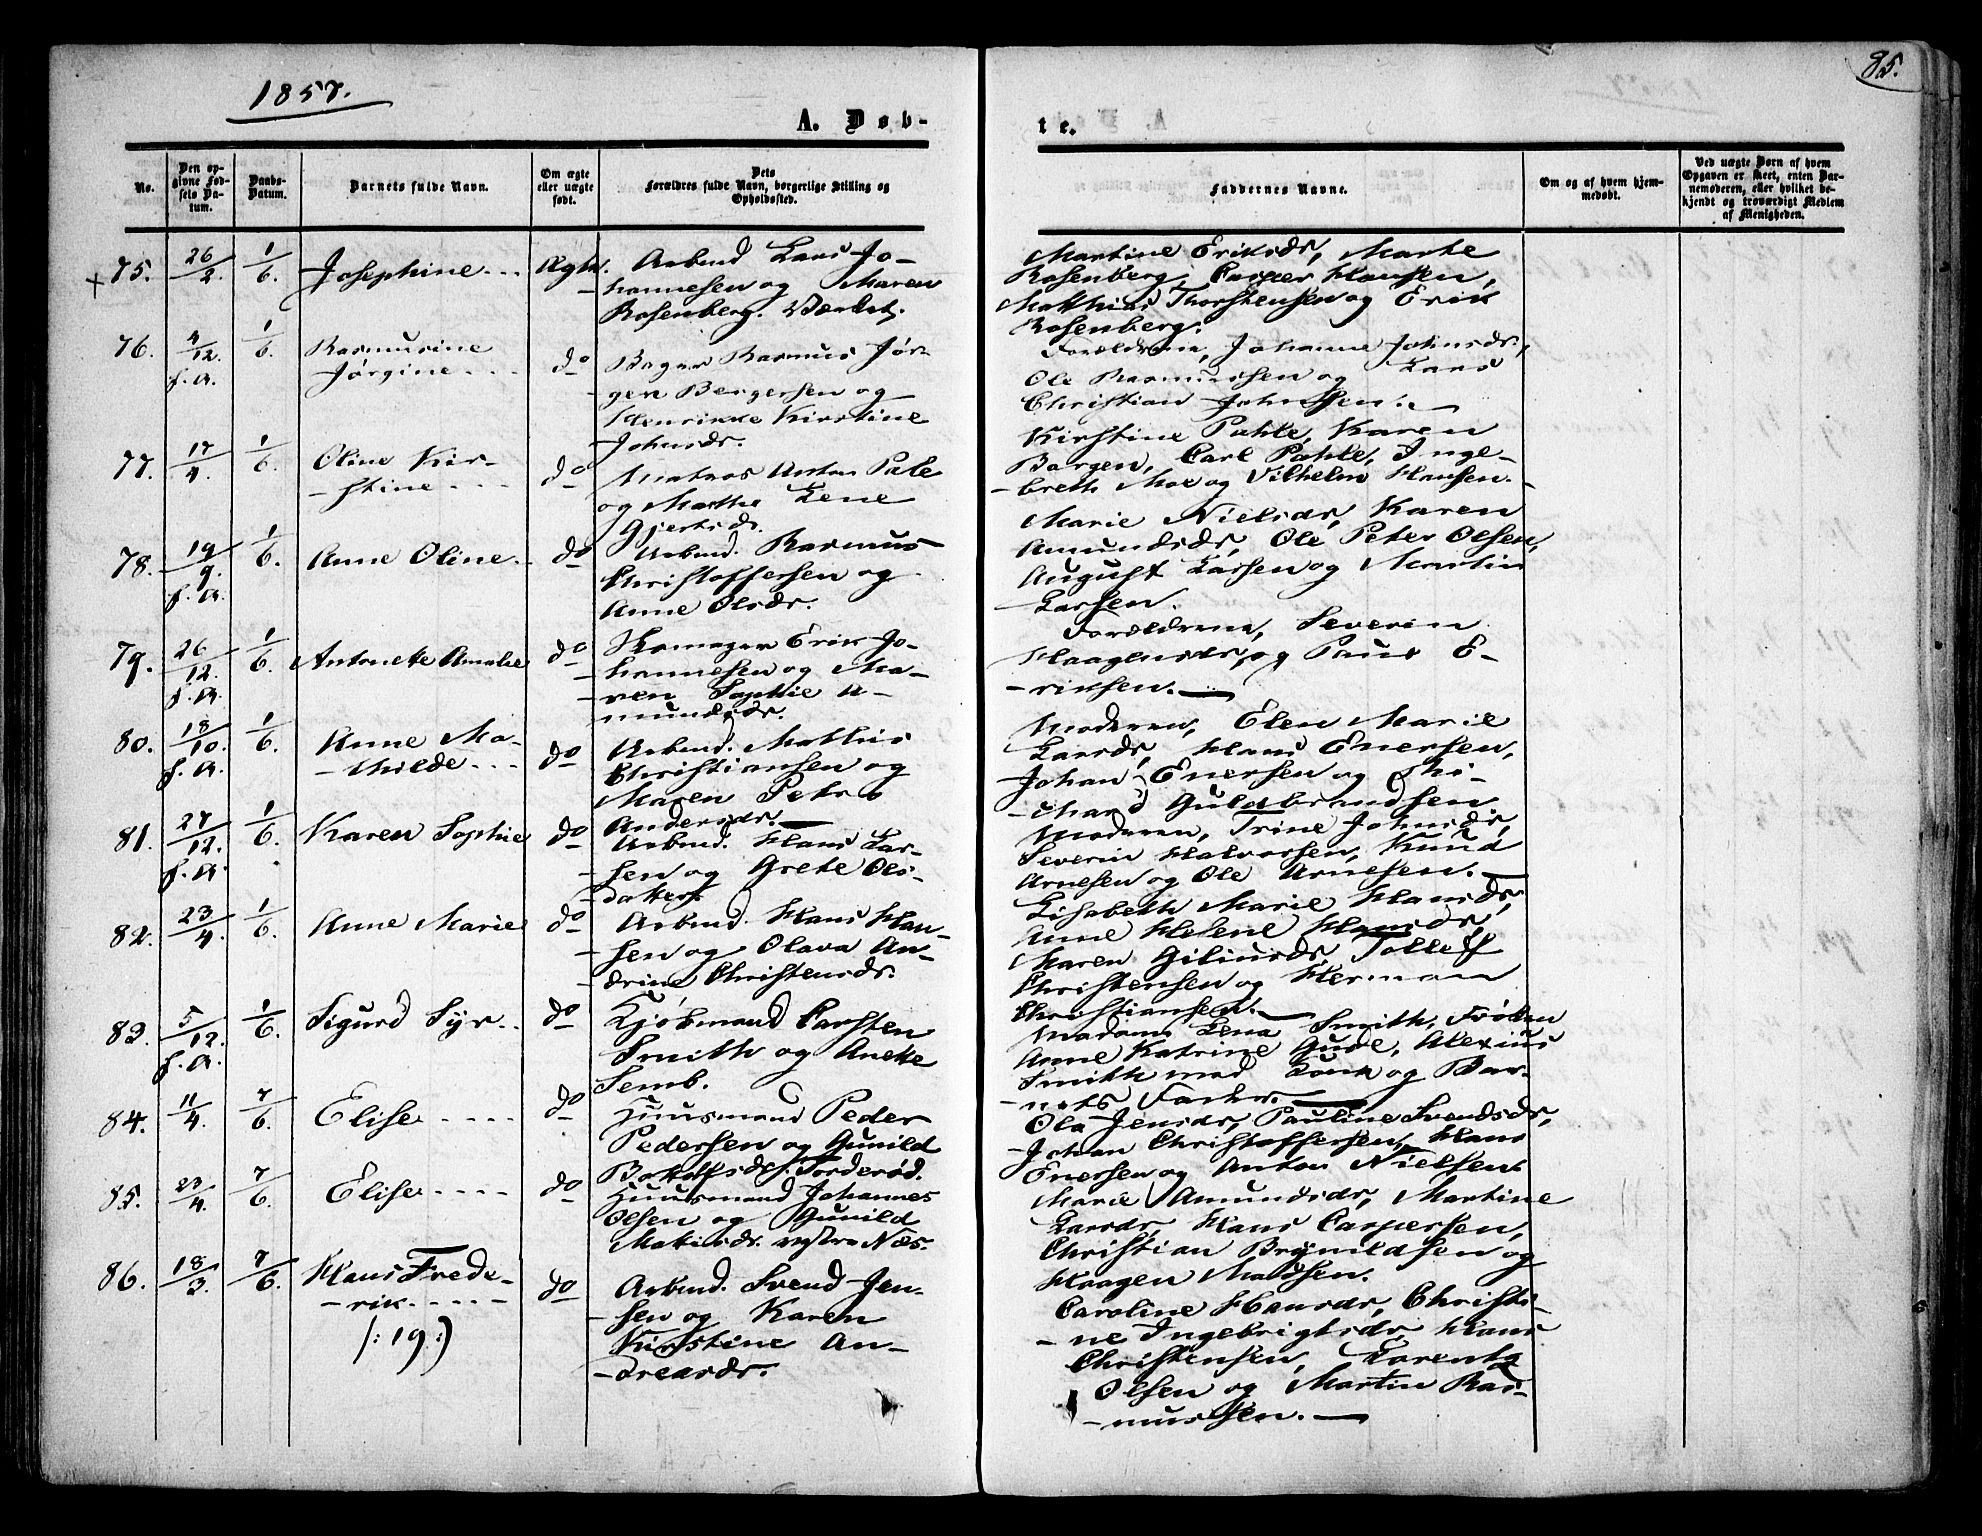 1857.
85.
A. Døb-
te.
No.
Den op-
givne Fød-
sels Da-
tum.
Daabs-
Datum.
Barnets fulde Navn.
Om ægte
eller uægte
født.
Dets
Forældres fulde Navn, borgerlige Stilling og
Opholdssted.
Faddernes Navne.
Om og af hvem hjem-
medøbt.
Ved uægte Børn af hvem
Opgaven er skeet, enten Bar-
nemoderen, eller hvilket be-
kjendt og troværdigt Medlem
af Menigheden.
+ 75. 26/2. 1/6. Josephine Ægte.
Arbmd Lars Jo-
hannesen og Maren
Rosenberg. Værket.
Martine Eriksdr, Marte
Rosenberg, Casper Hansen,
Matthias Thorstensen og Erik
Rosenberg.
76. 4/12. f.A. 1/6. Rasmusine
Jørgine do
Bager Rasmus Jør-
gen Bergersen og
Henrikke Kirstine
Johnsdr.
Forældrene, Johanne Johnsdr,
Ole Rasmussen og Lars
Christian Johnsen.
77. 17/4. 1/6. Oline Kir-
stine do
Matros Anton Pale
og Marthe Lene
Gjertsdr.
Kirstine Pahle, Karen
Borgen, Carl Pahle, Inge-
breth Moe og Vilhelm Hansen.
78. 19/9. f.A. 1/6. Anne Oline do
Arbmd. Rasmus
Christoffersen og
Anne Olsdr.
Marie Nielsdr, Karen
Amundsdr, Ole Peter Olsen,
August Larsen og Martin
Larsen.
79. 26/12. f.A. 1/6. Antonette Amalie do
Skomager Erik Jo-
hannesen og Ma-
ren Sophie A-
mundsdr.
Forældrene, Severin
Haagensdr, og Paul E-
riksen.
80. 18/10. f.A. 1/6. Anne Ma-
thilde do
Arbmd. Mathis
Christiansen og
Maren Petra
Andersdr.
Moderen, Elen Marie
Larsdr, Hans Enersen,
Johan Enersen og
Guldbrandsen.
81. 27/12. f.A. 1/6. Karen Sophie do
Arbmd. Hans Lar-
sen og Grete Ols-
datter.
Moderen, Trine Johnsdr,
Severin Halvorsen, Knud
Arnesen og Ole Arnesen.
82. 23/4. 1/6. Anne Marie do
Arbmd. Hans Han-
sen og Olava An-
drine Christensdr.
Lisabeth Marie Hansdr,
Anne Helene Hansdr,
Maren Giliusdr, Tollef
Christensen og Herman
Christiansen.
83. 5/12. f.A. 1/6. Sigurd Syr do
Kjøbmand Carsten
Smith og Anette
Semb.
Madam Lena Smith, Frøken
Anne Katrine Gude, Alexius
Smith med Kone og Bar-
nets Fader.
84. 11/4. 7/6. Elise do
Huusmand Peder
Pedersen og Gunild
Torderød.
Ola Jensdr, Pauline Svendsdr,
Johan Christoffersen, Hans
Enersen og Anton Nielsen.
85. 23/4. 7/6. Elise do
Huusmand Johannes
Olsen og Gunild
Mathisdr. Næs.
Marie Amundsdr, Martine
Larsdr, Hans Caspersen,
Christian Brynildsen og
Haagen Madsen.
86. 18/3. 7/6. Hans Frede-
rik
/: 19 :)
do
Arbmd. Svend Jen-
sen og Karen
Kirstine An-
dreasdr.
Caroline Hansdr, Christi-
ne Ingebrigtsdr, Hans
Christensen, Lorents
Olsen og Martin Ras-
mussen.